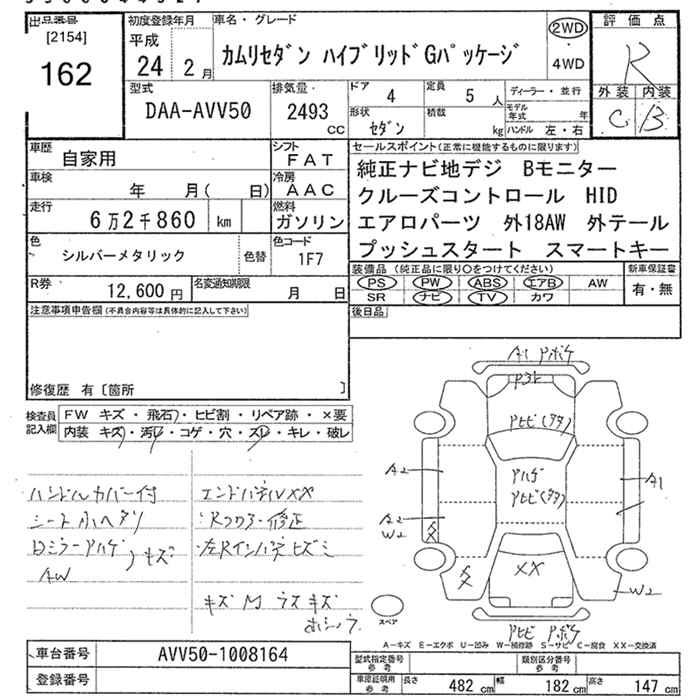 出品番号
[2154]
162
初度登録年月
平成
24 2月
車名・グレード
カムリセダン ハイブリッドGパッケージ
2WD
4WD
評価点
R
外装 内装
C B
型式
DAA-AVV50
排気量
2493
cc
ドア 4
定員 5 人
形状 セダン
積載 kg
ディーラー・並行
モデル年式 年
ハンドル 左・右
車歴 自家用
シフト FAT
車検 年 月( 日)
冷房 AAC
走行 6万2千860 km
燃料 ガソリン
色 シルバーメタリック
色替
色コード 1F7
R券 12,600円
名変通知期限 月 日
セールスポイント(正常に機能するものに限ります)
純正ナビ地デジ Bモニター
クルーズコントロール HID
エアロパーツ 外18AW 外テール
プッシュスタート スマートキー
装備品(純正品に限り○をつけてください)
新車保証書
PS PW ABS エアB AW
SR ナビ TV カワ
有・無
後日品
注意事項申告欄(不具合内容等は具体的に記入して下さい)
修復歴 有〔箇所 〕
検査員記入欄
FW キズ・飛石・ヒビ割・リペア跡・×要
内装 キズ・汚レ・コゲ・穴・スレ・キレ・破レ
ハンドルカバー付
シート小ヘタリ
Dミラーアハゲ
AW
キズ
エンドパネルXX
左Rインパネヒズミ
キズM ラスキズ
A1 Pボケ
Pヒビ(タタ)
Pハゲ
Pヒビ(タタ)
A2
A2
W2
A1
XX
W2
Pヒビ Pボケ
スペア
A-キズ E-エクボ U-凹み W-補修跡 S-サビ C-腐食 XX-交換済
車台番号 AVV50-1008164
登録番号
型式指定番号参考
類別区分番号参考
車庫証明用参考
長さ 482 cm
幅 182 cm
高さ 147 cm